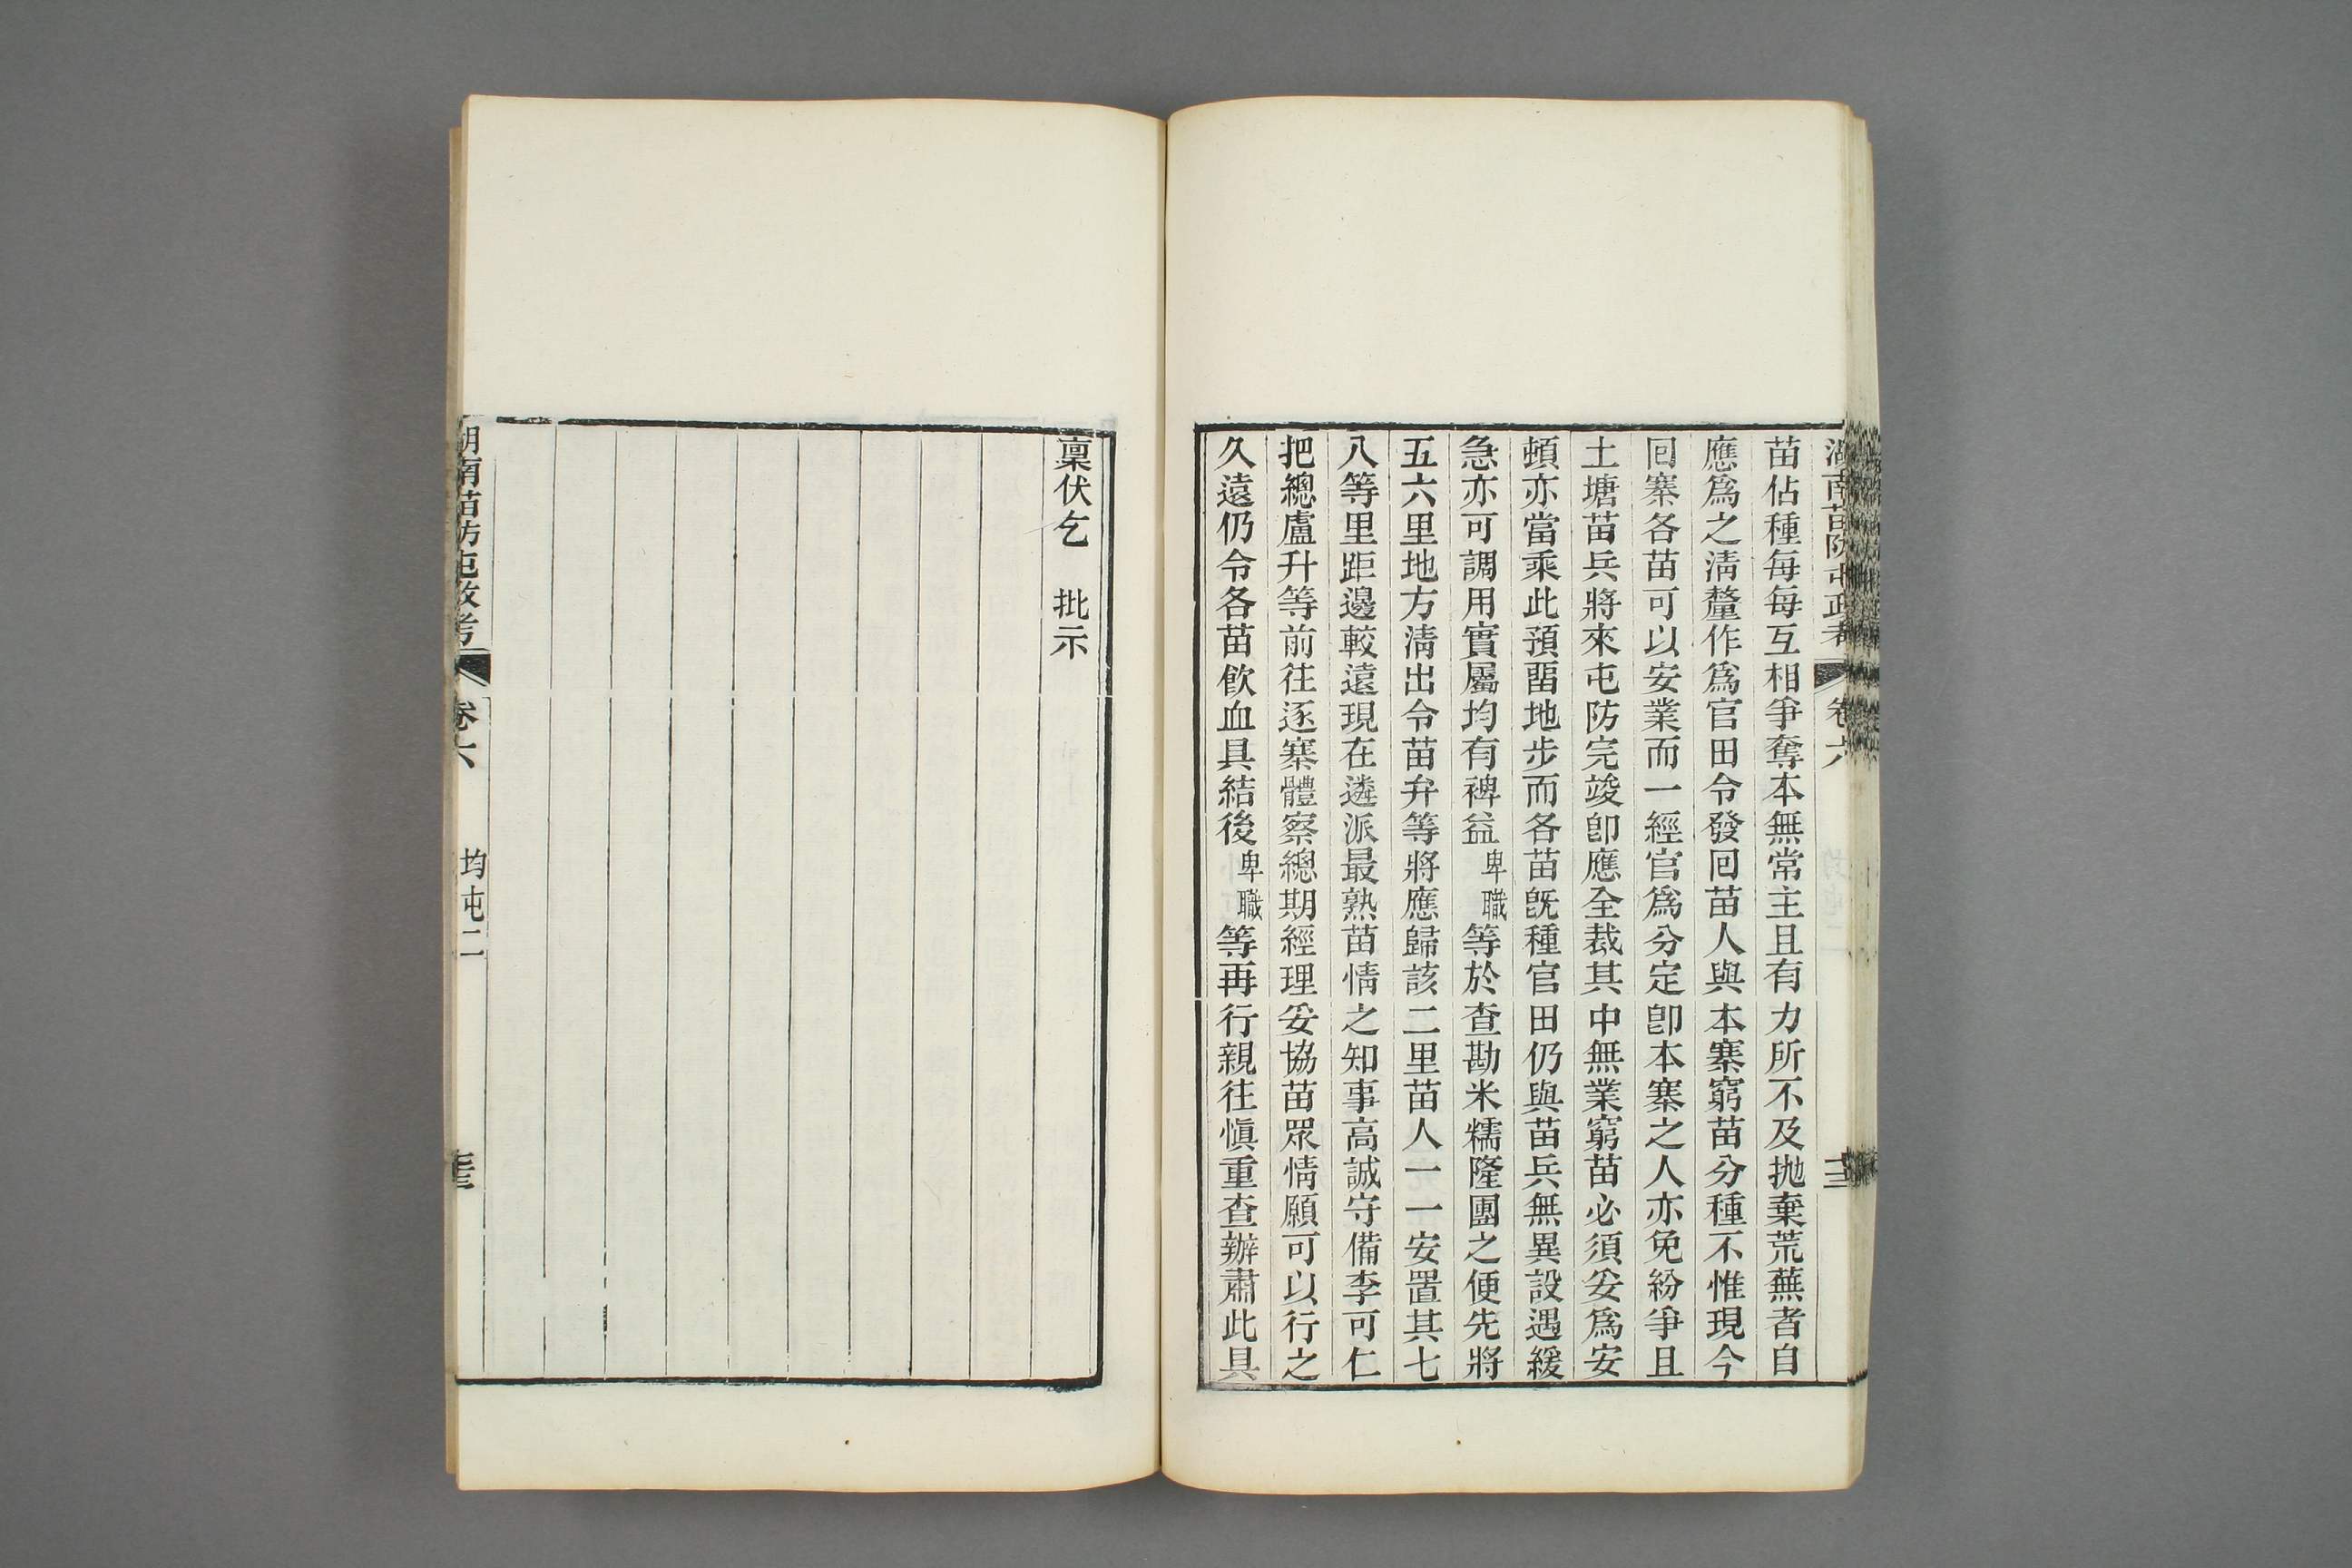 湖南苗防屯政考
卷六
苗佔種每每互相爭奪本無常主且有力所不及拋棄荒蕪者自
應爲之淸釐作爲官田令發回苗人與本寨窮苗分種不惟現今
回寨各苗可以安業而一經官爲分定卽本寨之人亦免紛爭且
土塘苗兵將來屯防完竣卽應全裁其中無業窮苗必須妥爲安
頓亦當乘此預畱地步而各苗旣種官田仍與苗兵無異設遇緩
急亦可調用實屬均有裨益卑職等於查勘米糯隆團之便先將
五六里地方淸出令苗弁等將應歸該二里苗人一一安置其七
八等里距邊較遠現在遴派最熟苗情之知事高誠守備李可仁
把總盧升等前往逐寨體察總期經理妥協苗眾情願可以行之
久遠仍令各苗飮血具結後卑職等再行親往愼重查辦肅此具
稟伏乞　批示
湖南苗防屯政考
卷六
均屯二